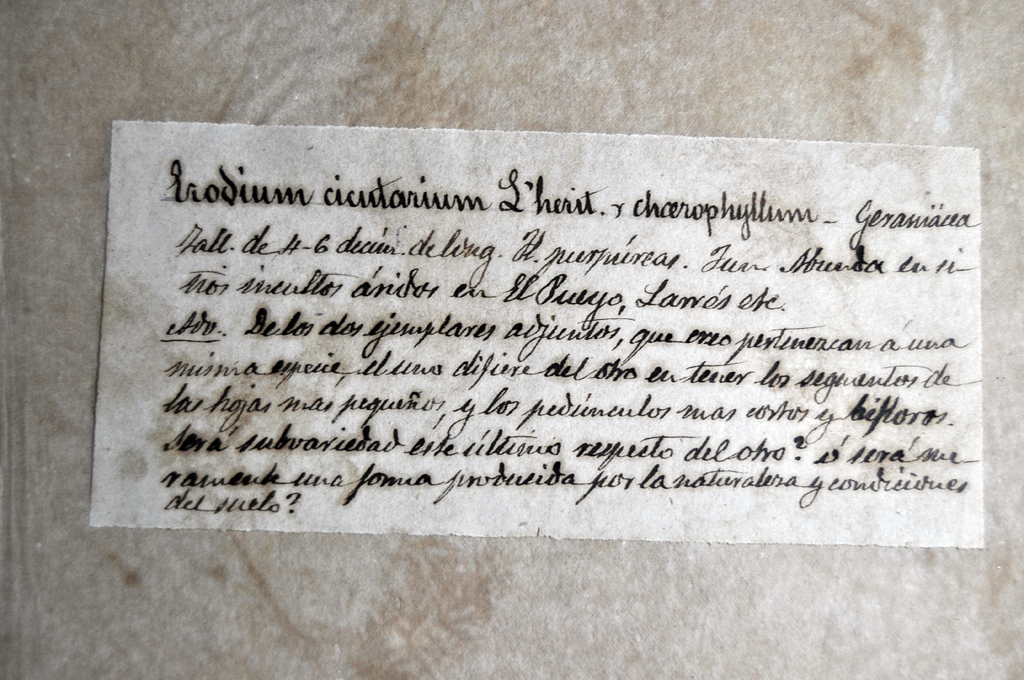 Erodium cicutarium L'herit. γ chœrophyllum - Geraniácea
Tall. de 4-6 decím. de long. Fl. purpúreas. Jun. Abunda en si-
tios incultos áridos en El Pueyo, Larrés etc.
Adv. De los dos ejemplares adjuntos, que creo pertenezcan á una
misma especie, el uno difiere del otro en tener los segmentos de
las hojas mas pequeños, y los pedúnculos mas cortos y bifloros.
Será subvariedad este último respecto del otro? ó será me-
ramente una forma producida por la naturaleza y condiciones
del suelo?